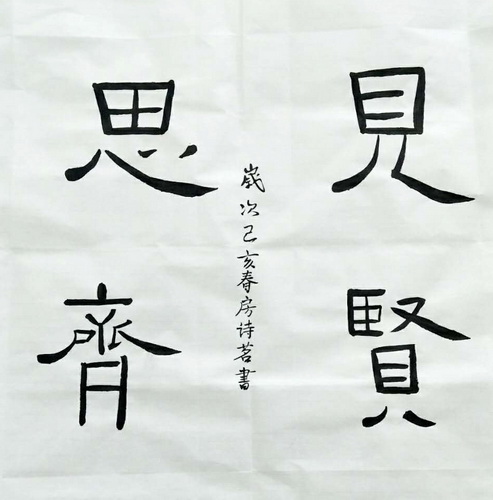 見賢
思齊
歲次己亥春房诗茗書